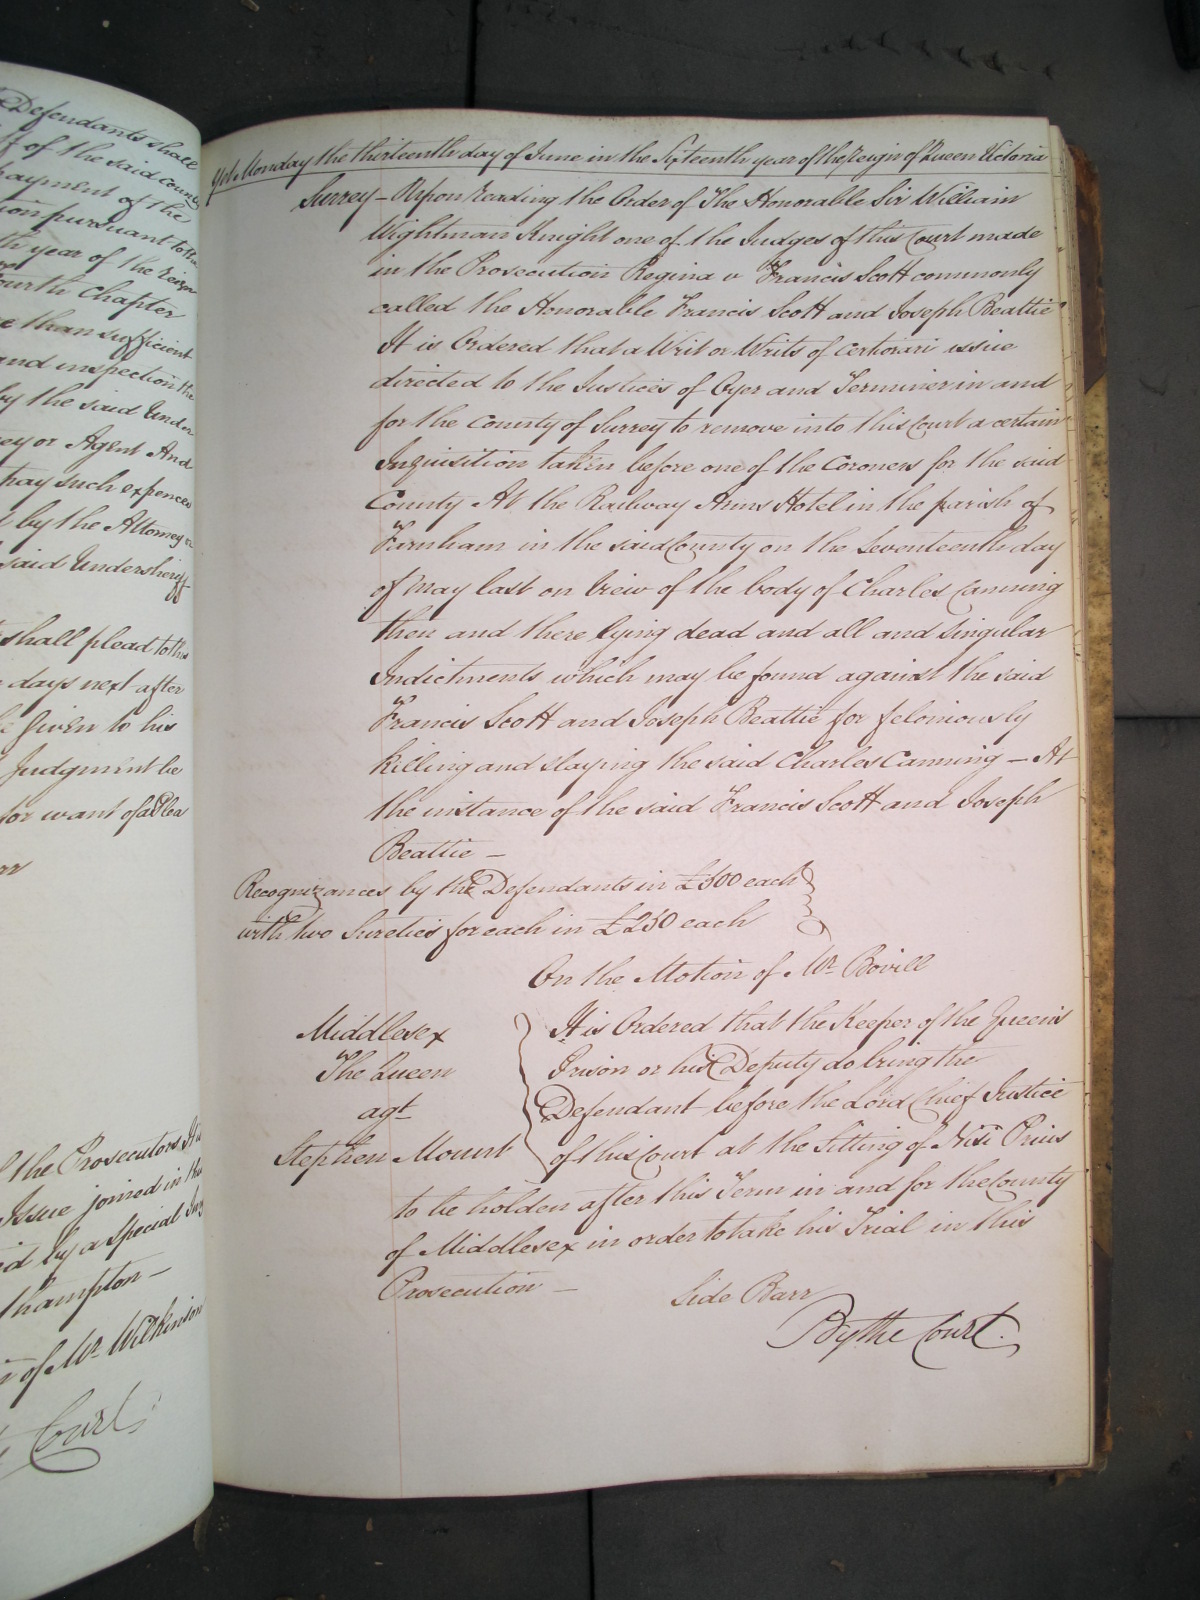 Defendants shall
of the said County
payment of the
pursuant to the
th year of the Reign
ourth Chapter
than sufficient
and inspection the
by the said Under
ey or Agent And
pay such expences
by the Attorney or
said Undersheriff
shall plead to this
days next after
Given to his
Judgment be
for want of a Plea
the Prosecutors It is
Issue joined in this
by a Special Jury
thampton —
of Mr. Wilkinson
Court
Yet Monday the thirteenth day of June in the Sixteenth year of the Reign of Queen Victoria
Surrey – Upon Reading the Order of The Honorable Sir William
Wightman Knight one of the Judges of this Court made
in the Prosecution Regina v Francis Scott commonly
called the Honorable Francis Scott and Joseph Beattie
It is Ordered that a Writ or Writs of Certiorari issue
directed to the Justices of Oyer and Terminer in and
for the County of Surrey to remove into this Court a certain
Inquisition taken before one of the Coroners for the said
County At the Railway Arms Hotel in the parish of
Farnham in the said County on the Seventeenth day
of May last on View of the body of Charles Canning
then and there lying dead and all and singular
Indictments which may be found against the said
Francis Scott and Joseph Beattie for feloniously
killing and slaying the said Charles Canning – At
the instance of the said Francis Scott and Joseph
Beattie –
Recognizances by the Defendants in £500 each
with two Sureties for each in £250 each
On the Motion of Mr. Bovill
Middlesex
The Queen
agt
Stephen Mount
It is Ordered that the Keeper of the Queens
Prison or his Deputy do bring the
Defendant before the Lord Chief Justice
of this Court at the Sitting of Nisi Prius
to be holden after this Term in and for the County
of Middlesex in order to take his Trial in this
Prosecution –
Side Barr
By the Court.